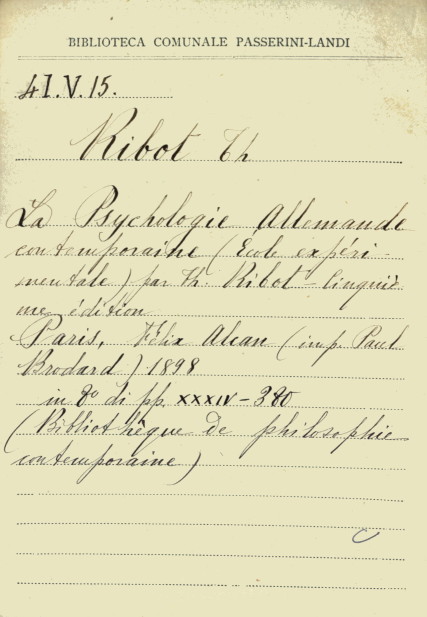 BIBLIOTECA COMUNALE PASSERINI-LANDI
4I.V.15.
Ribot Th
La Psychologie Allemande
contemporaine (École expéri-
mentale) par Th. Ribot - Cinquiè
me édition
Paris, Félix Alcan (imp. Paul
Brodard) 1898
in 8º di pp. XXXIV - 380
(Bibliothèque de philosophie
contemporaine)